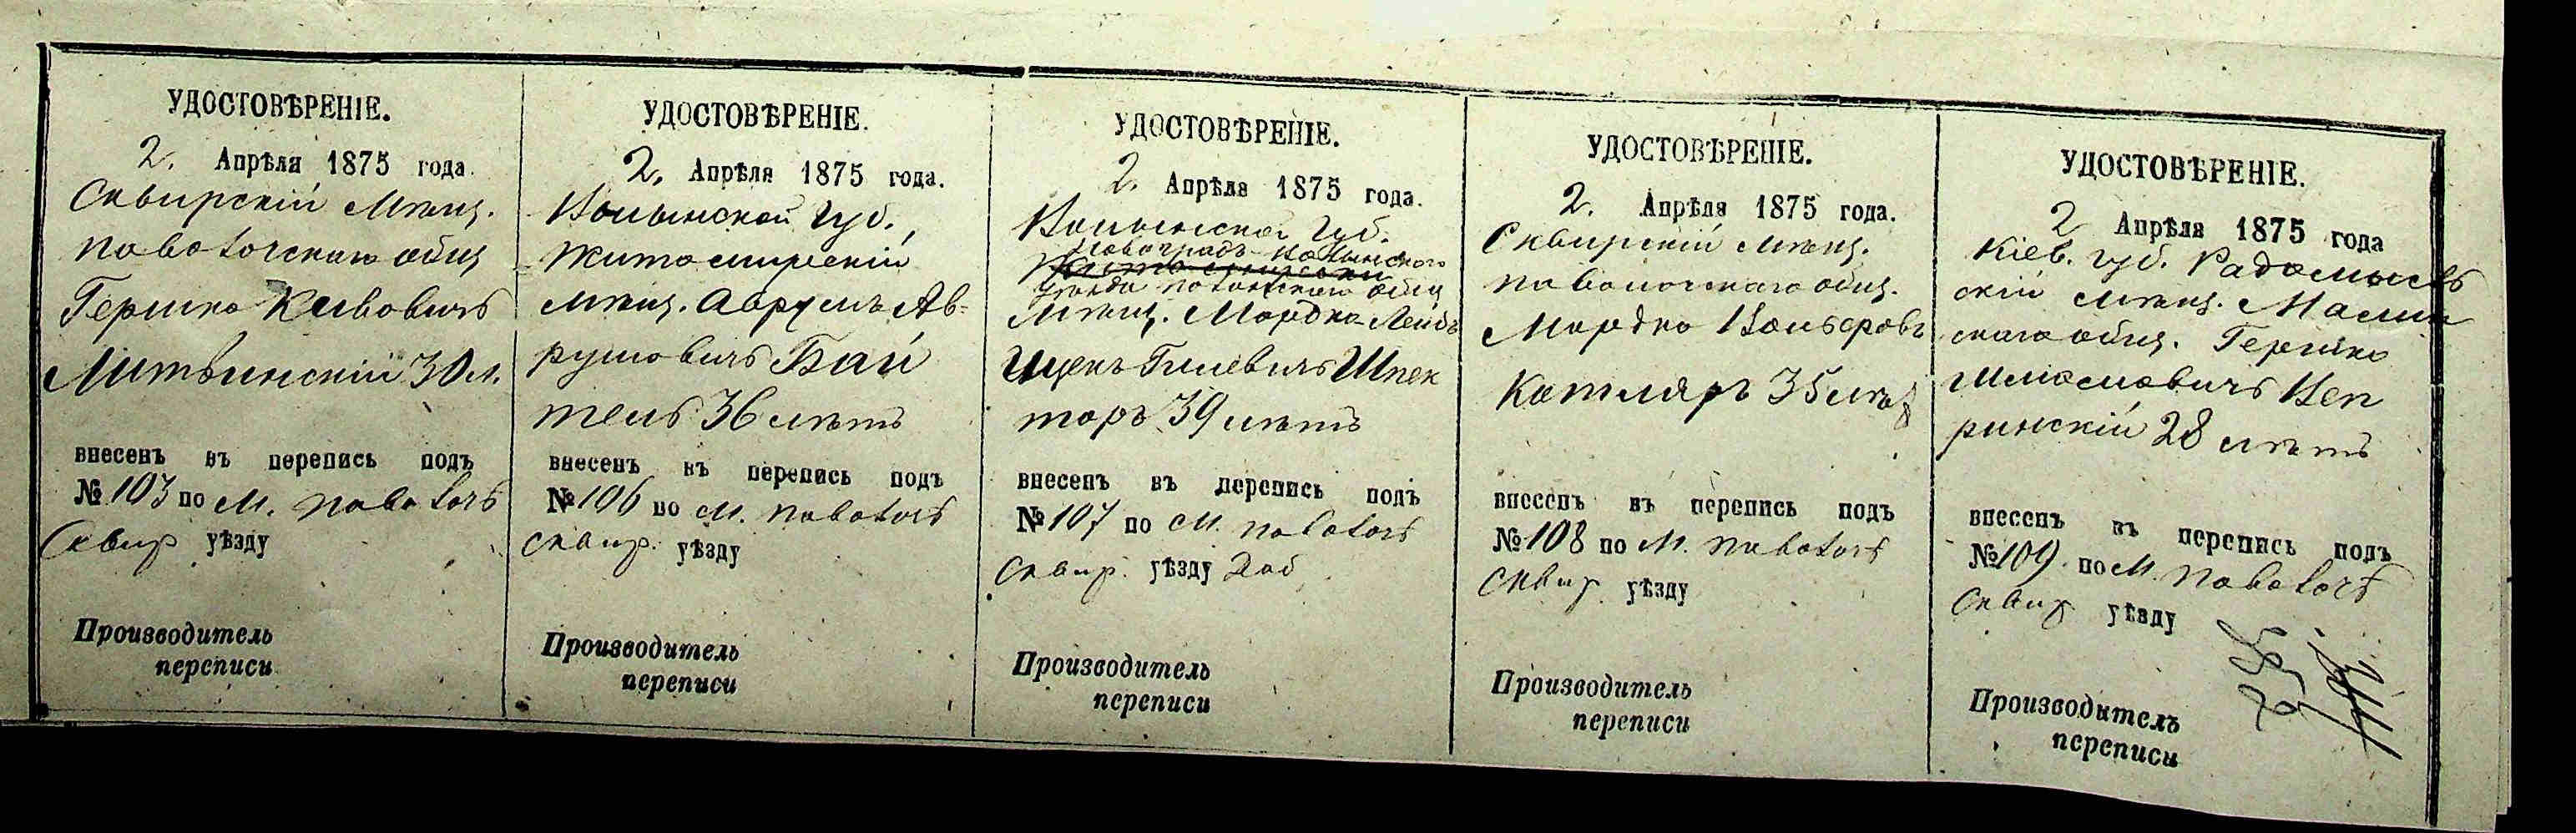 УДОСТОВѢРЕНІЕ.
2. Апрѣля 1875 года.
Сквирскій мѣщ.
паволочскаго общ
Гершко Кивовичъ
Литвинскій 30 л.
внесенъ въ перепись подъ
№ 103 по м. паволочь
Сквир уѣзду
Производитель
переписи
УДОСТОВѢРЕНІЕ.
2. Апрѣля 1875 года.
Волынской губ.,
житомирскій
мѣщ. Аврумъ Ав-
румовичъ Бай
тель 36 лѣтъ
внесенъ въ перепись подъ
№ 106 по м. паволочь
сквир. уѣзду
Производитель
переписи
УДОСТОВѢРЕНІЕ.
2. Апрѣля 1875 года.
Волынской губ.
Новоградъ-Волынского
уѣзда общ
мѣщ. Мордко-Лейбъ
Шпек
торъ 39 лѣтъ
внесенъ въ перепись подъ
№ 107 по м. паволочь
Сквир. уѣзду
Производитель
переписи
УДОСТОВѢРЕНІЕ.
2. Апрѣля 1875 года.
Сквирскій мѣщ.
паволочскаго общ.
Мордко Вольфовъ
Котляръ 35 лѣтъ
внесенъ въ перепись подъ
№ 108 по м. паволочь
Сквир уѣзду
Производитель
переписи
УДОСТОВѢРЕНІЕ.
2 Апрѣля 1875 года
Кіев. губ. Радомысль
скій мѣщ. Малин
скаго общ. Гершко
Шлиомовичъ Веп
ринскій 28 лѣтъ
внесенъ въ перепись подъ
№ 109. по м. паволочь
Сквир уѣзду
Производитель
переписи